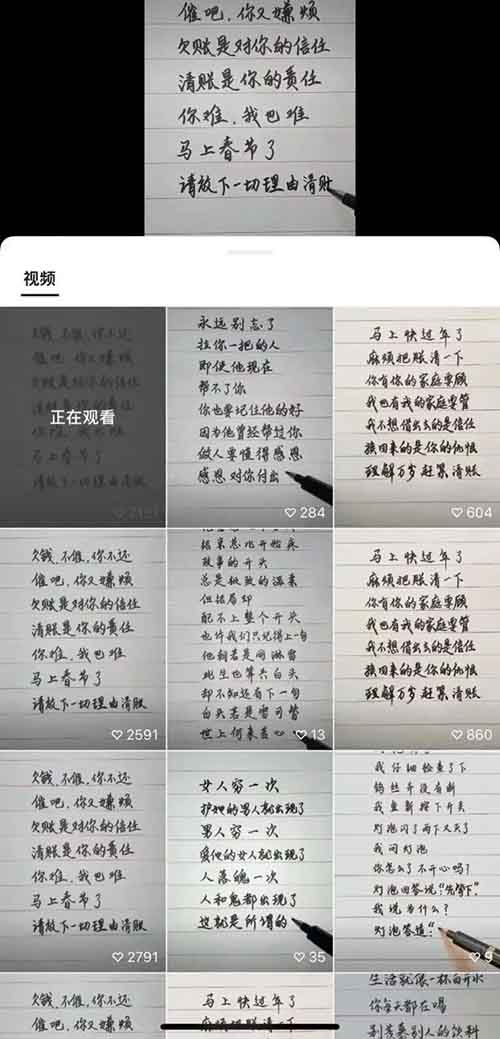 催吧,你又嫌烦
欠账是对你的信任
清账是你的责任
你难,我也难
马上春节了
请放下一切理由清账
视频
欠钱,不催,你不还
催吧,你又嫌烦
欠账是对你的信任
清账是你的责任
你难,我也难
马上春节了
请放下一切理由清账
正在观看
2491
永远别忘了
拉你一把的人
即使他现在
帮不了你
你也要记住他的好
因为他曾经帮过你
做人要懂得感恩
感恩对你付出
284
马上快过年了
麻烦把账清一下
你有你的家庭要顾
我也有我的家庭要管
我不想借出去的是信任
换回来的是你的仇恨
理解万岁赶紧清账
604
欠钱,不催,你不还
催吧,你又嫌烦
欠账是对你的信任
清账是你的责任
你难,我也难
马上春节了
请放下一切理由清账
2591
故事的开头
总是极致的温柔
但结局却
配不上整个开头
也许我们只记得上一句
他朝若是同淋雪
此生也算共白头
却不知还有下一句
白头若是雪可替
世上何来苦心
13
马上快过年了
麻烦把账清一下
你有你的家庭要顾
我也有我的家庭要管
我不想借出去的是信任
换回来的是你的仇恨
理解万岁赶紧清账
860
欠钱,不催,你不还
催吧,你又嫌烦
欠账是对你的信任
清账是你的责任
你难,我也难
马上春节了
请放下一切理由清账
2791
女人穷一次
护她的男人就出现了
男人穷一次
爱他的女人就出现了
人落魄一次
人和鬼都出现了
这就是所谓的
35
我仔细检查了下
钨丝并没有断
我重新按下开关
灯泡闪了两下又灭了
我问灯泡
你怎么了不开心吗?
灯泡回答说:"先停下"
我说为什么?
灯泡答道:"
9
欠钱,不催,你不还
催吧,你又嫌烦
马上快过年了
麻烦把账清一下
生活就像一杯白开水
你每天都在喝
别羡慕别人的饮料